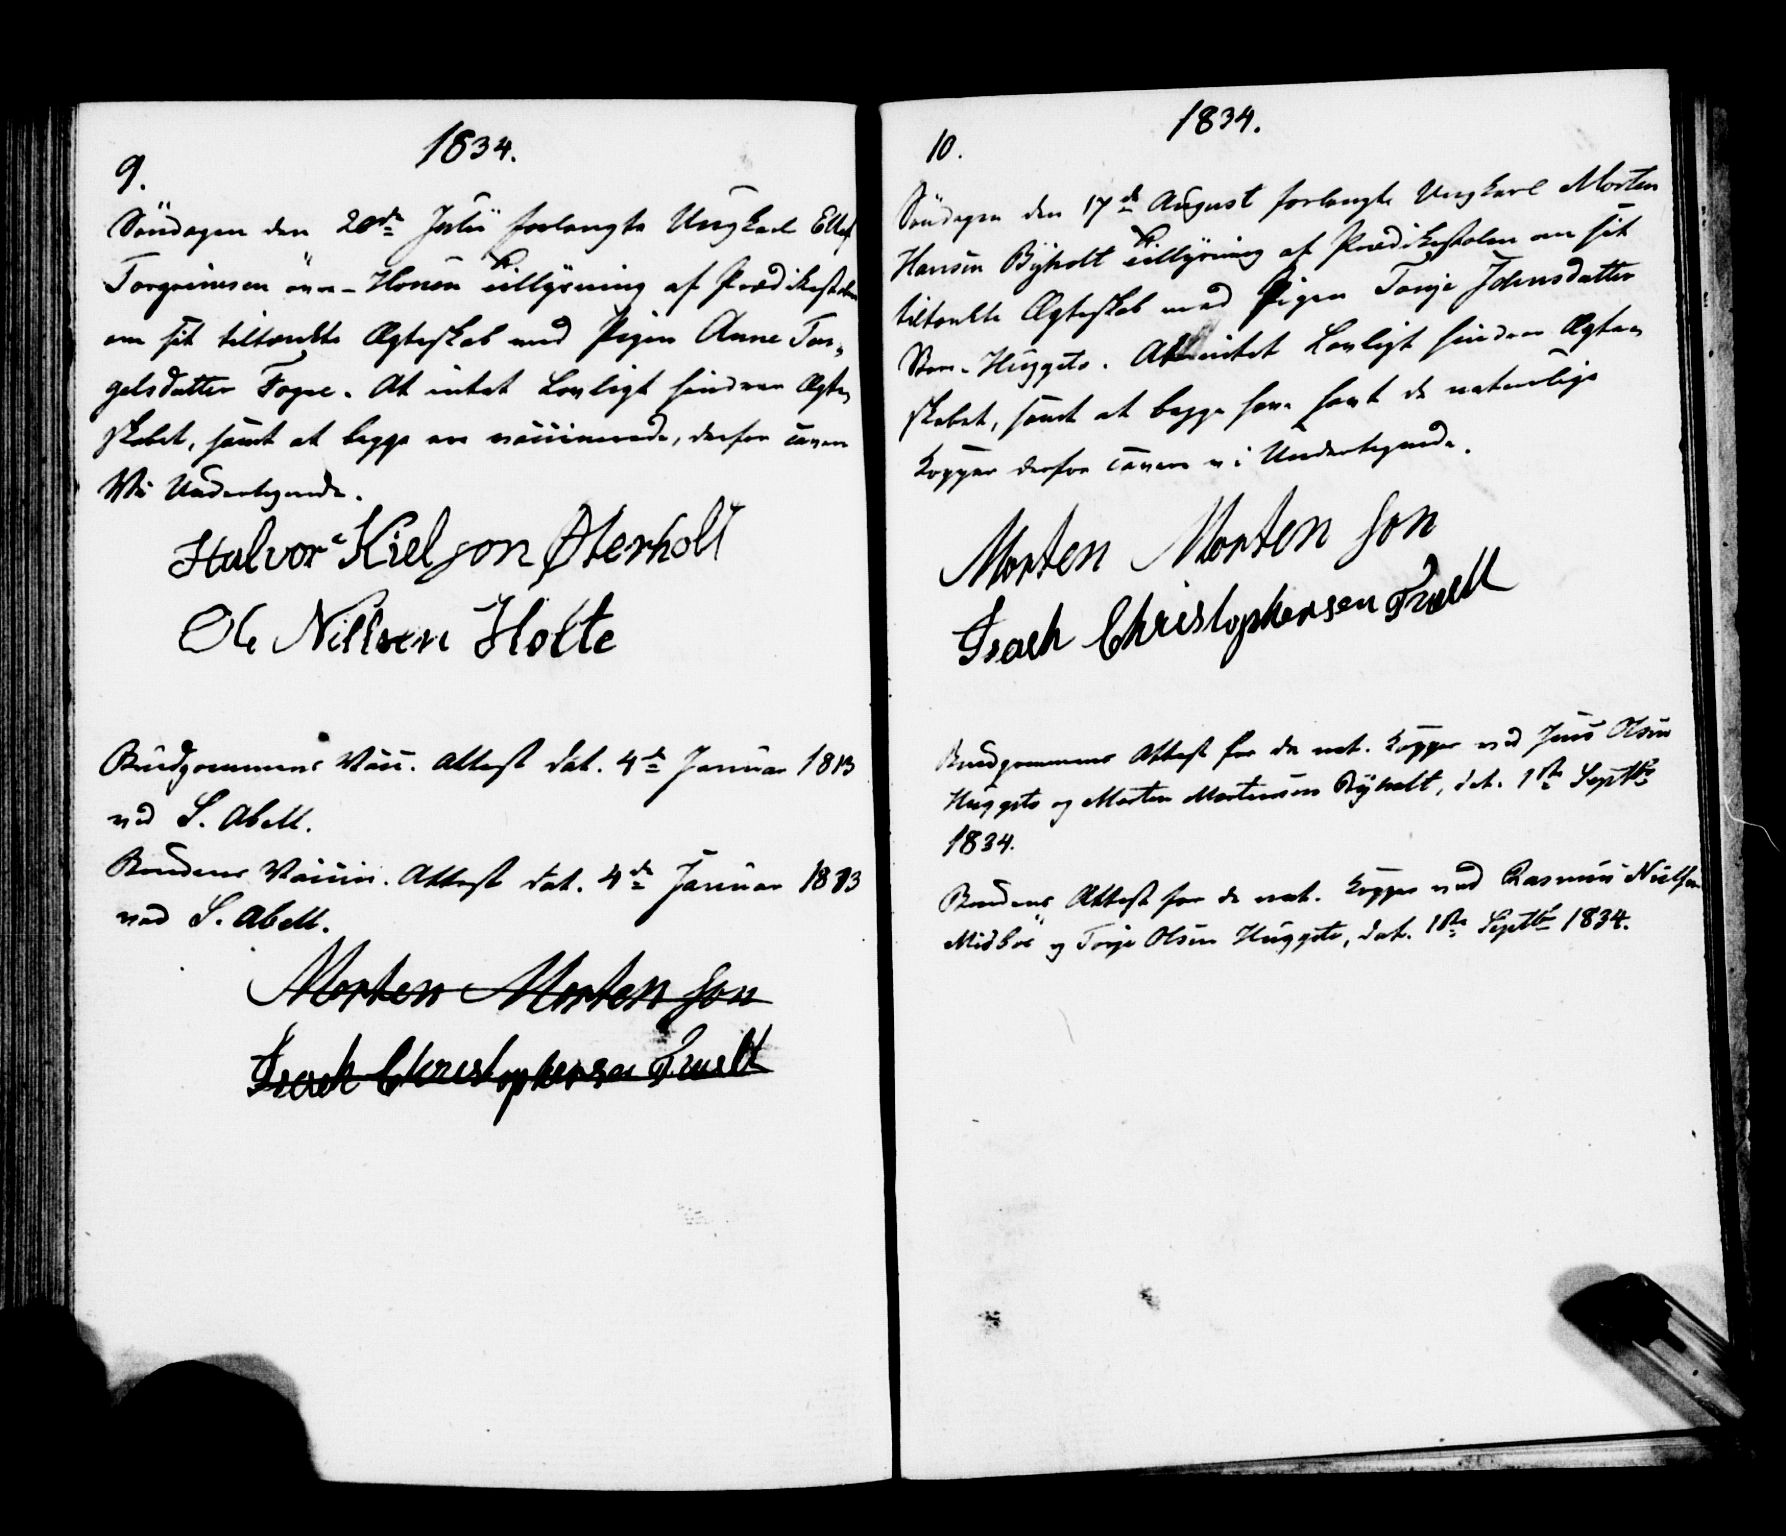 1834.
9.
Söndagen den 20de Julii forlangte Ungkarl Ellef
Torgrimsen övre-Honen Tillysning af Prædikestolen
om sit tiltænkte Ægteskab med Pigen Anne Tor-
gelsdatter Fogne. At intet Lovligt hindrer Ægte-
skabet, samt at begge ere vaccinerede, derfor cavere
Vi Undertegnede.
Halvor Kielson Østerholt
Ole Nillsen Holte
Brudgommens Vacc. Attest dat. 4de Januar 1813
ved S. Abell.
Brudens Vaccin. Attest dat. 4de Januar 1813
ved S. Abell.
Morten Morten son
Isach Christophersen
1834.
10.
Söndagen den 17de August forlangte Ungkarl Morten
Hansen Byholt Tillysning af Prædikestolen om sit
tiltænkte Ægteskab med Pigen Tonje Johnsdatter
Huggeto. At intet Lovligt hindrer Ægte-
skabet, samt at begge have havt de naturlige
Kopper derfor cavere vi Undertegnede.
Morten Morten son
Isach Christophersen
Brudgommens Attest for de nat. Kopper ved Jens Olsen
Huggeto og Morten Mortensen Byholt, dat. 1ste Septbr
1834.
Brudens Attest for de nat. Kopper ved Rasmus Nielsen
Midböe og Torje Olsen Huggeto, dat. 1ste Septbr 1834.